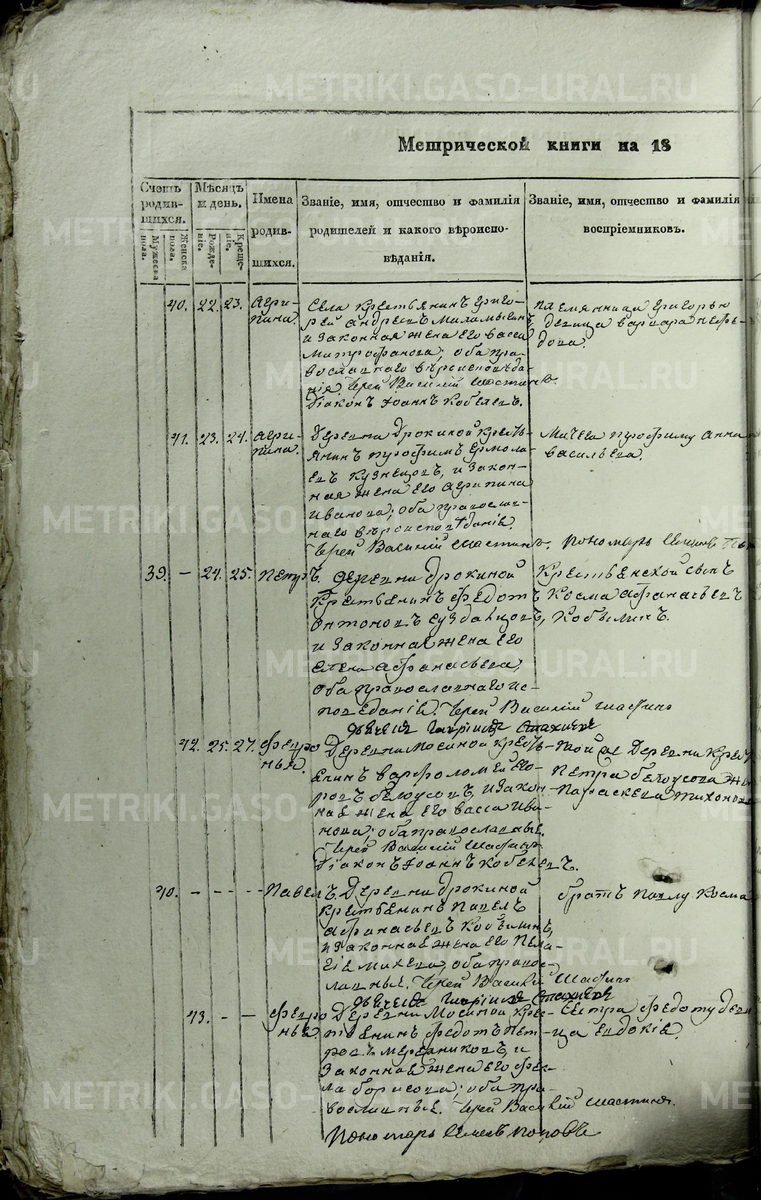 METRIKI.GASO-URAL.RU
Метрической книги на 18
Счетъ родив-шихся.
Мужеска пола.
Женска пола.
Мѣсяцъ и день.
Рожде-нiе.
Креще-нiе.
Имена родив-шихся.
Званiе, имя, отчество и фамилiя родителей и какого вѣроиспо-вѣданiя.
Званiе, имя, отчество и фамилiя воспрiемниковъ.
40. 22. 23. Агри-пина
Села крестьянинъ григо-
рей андреевъ
и законная жена его васса
митрофанова, оба пра-
вославнаго вѣроисповѣда-
нiя Iерей Василiй Шастинъ.
Дiаконъ Iоаннъ Кобелевъ.
племянница григорью
девица варвара
дова.
41. 23. 24. Агри-пина.
Деревни Дрокиной кресть-
янинъ трофимъ ермола-
евъ кузнецовъ, и закон-
ная жена его агрипина
иванова; оба православ-
наго вѣроисповѣданiя.
Iерей Василiй Шастинъ. пономарь
трофиму анна
васильева.
39. — 24. 25. Петръ.
деревни дрокиной
крестьянинъ федотъ
антоновъ суздальцовъ,
и законная жена его
елена афанасьева,
оба православнаго ис-
поведанiя. Iерей Василiй Шастинъ
крестьянской сынъ
косма афанасьевъ
кобылинъ.
42. 25. 27. февро-нья.
Деревни Мосиной кресть-
янинъ варфоломей его-
ровъ белоусовъ, и закон-
ная жена его васса ива-
нова; оба православные.
Iерей Василiй Шастинъ
Дiаконъ Iоаннъ Кобелевъ.
той же деревни
петра белоусова
параскева тихонова
40. - - - - Павелъ.
Деревни дрокиной
крестьянинъ павелъ
афанасьевъ кобылинъ,
и законная жена его пела-
гiя михеева, оба право-
славные. Iерей Василiй Шастинъ
братъ павлу косма
43. — — февро-нья.
Деревни Мосиной крес-
тьянинъ федотъ пет-
ровъ и
законная жена его фек-
ла борисова; оба пра-
вославные. Iерей Василiй Шастинъ.
Пономарь Поповъ
сестра федоту деви-
ца евдокiя.